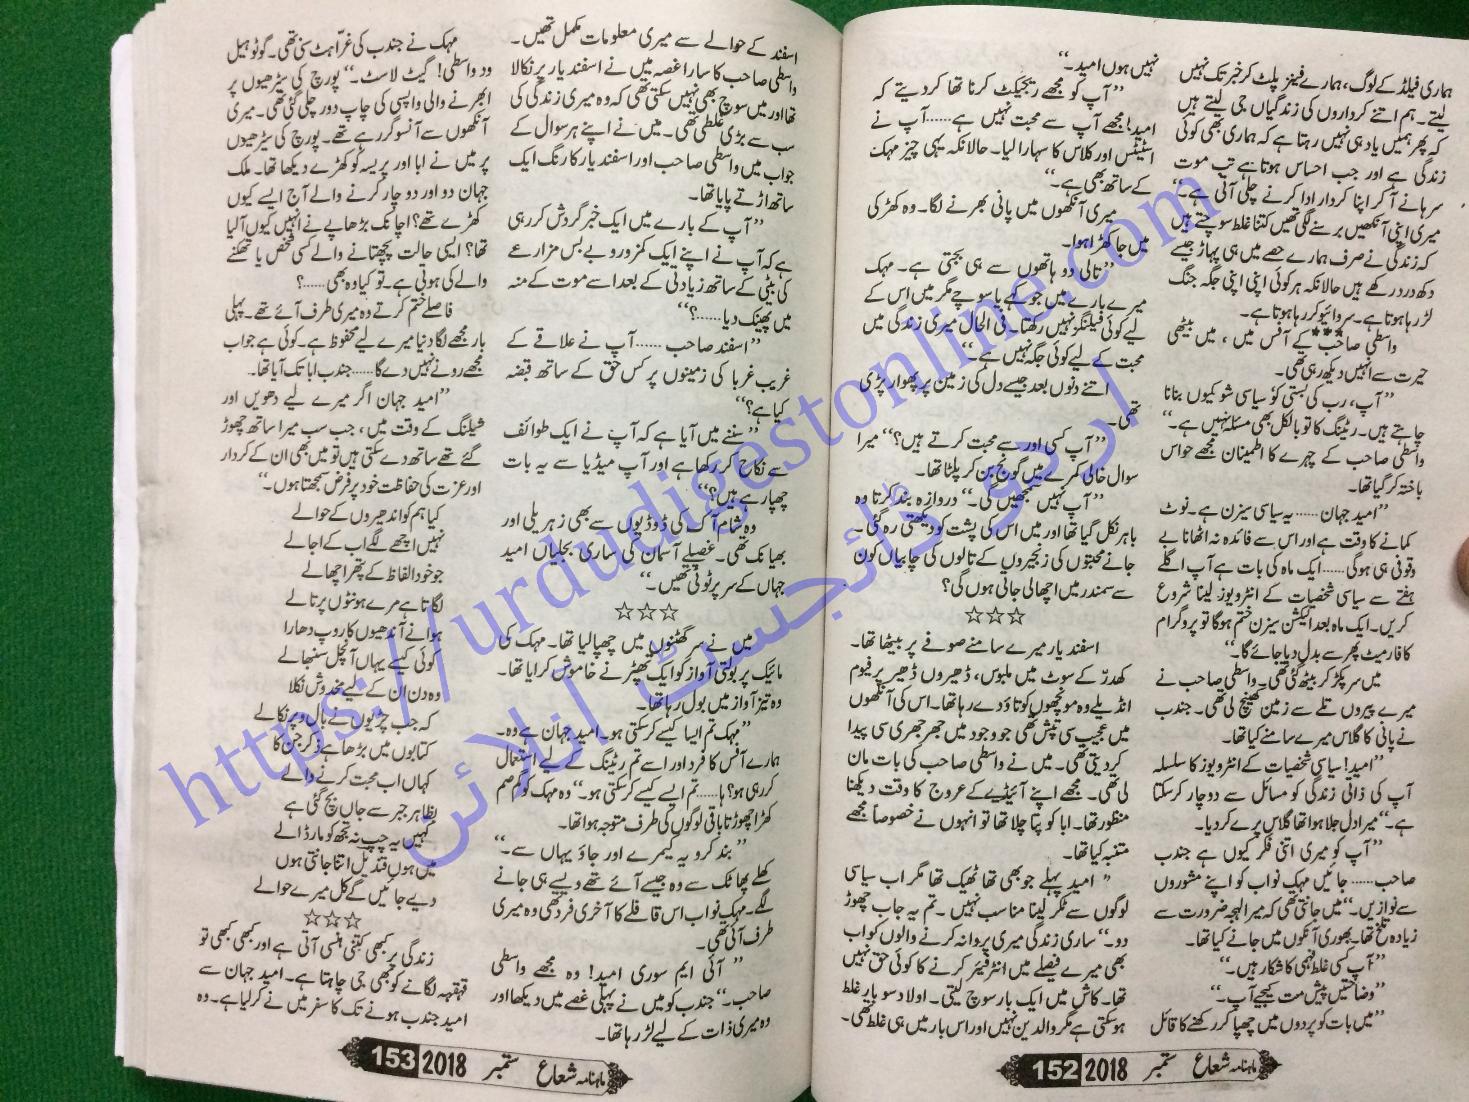 ہماری فیلڈ کے لوگ، ہمارے فینز پلٹ کر خبر تک نہیں
لیتے۔ ہم اتنے کرداروں کی زندگیاں جی لیتے ہیں
کہ پھر ہمیں یاد ہی نہیں رہتا ہے کہ ہماری بھی کوئی
زندگی ہے اور جب احساس ہوتا ہے تب موت
سرہانے آ کر اپنا کردار ادا کرنے چلی آتی ہے۔“
میری اپنی آنکھیں برسنے لگی تھیں کتنا غلط سوچتے ہیں
کہ زندگی نے صرف ہمارے حصے میں ہی پہاڑ جیسے
دکھ درد رکھے ہیں حالانکہ ہر کوئی اپنی اپنی جگہ جنگ
لڑ رہا ہوتا ہے۔ سروائیو کر رہا ہوتا ہے۔
***
واسطی صاحب کے آفس میں، میں بیٹھی
حیرت سے انہیں دیکھ رہی تھی۔
”آپ، رب کی بستی کو سیاسی شو کیوں بنانا
چاہتے ہیں۔ ریٹنگ کا تو بالکل بھی مسئلہ نہیں ہے۔“
واسطی صاحب کے چہرے کا اطمینان مجھے حواس
باختہ کر گیا تھا۔
”امید جہان...... یہ سیاسی سیزن ہے۔ نوٹ
کمانے کا وقت ہے اور اس سے فائدہ نہ اٹھانا بے
وقوفی ہی ہو گی...... ایک ماہ کی بات ہے آپ اگلے
ہفتے سے سیاسی شخصیات کے انٹرویوز لینا شروع
کریں۔ ایک ماہ بعد الیکشن سیزن ختم ہوگا تو پروگرام
کا فارمیٹ پھر سے بدل دیا جائے گا۔“
میں سر پکڑ کر بیٹھ گئی تھی۔ واسطی صاحب نے
میرے پیروں تلے سے زمین کھینچ لی تھی۔ جندب
نے پانی کا گلاس میرے سامنے کیا تھا۔
”امید! سیاسی شخصیات کے انٹرویوز کا سلسلہ
آپ کی ذاتی زندگی کو مسائل سے دو چار کر سکتا
ہے۔“ میرا دل جلا ہوا تھا گلاس پرے کر دیا۔
”آپ کو میری اتنی فکر کیوں ہے جندب
صاحب...... جائیں مہک نواب کو اپنے مشوروں
سے نوازیں۔“ میں جانتی تھی کہ میرا لہجہ ضرورت سے
زیادہ تلخ تھا۔ بھوری آنکوں میں جانے کیا تھا۔
”آپ کسی غلط فہمی کا شکار ہیں۔“
”وضاحتیں پیش مت کیجیے آپ۔“
”میں بات کو پردوں میں چھپا کر رکھنے کا قائل
نہیں ہوں امید۔“
”آپ کو مجھے ریجیکٹ کرنا تھا کر دیتے کہ
امید! مجھے آپ سے محبت نہیں ہے...... آپ نے
اسٹیٹس اور کلاس کا سہارا لیا۔ حالانکہ یہی چیز مہک
کے ساتھ بھی ہے۔“
میری آنکھوں میں پانی بھرنے لگا۔ وہ کھڑکی
میں جا کھڑا ہوا۔
”تالی دو ہاتھوں سے ہی بجتی ہے۔ مہک
میرے بارے میں جو کہے یا سوچے مگر میں اس کے
لیے کوئی فیلنگز نہیں رکھتا۔ فی الحال میری زندگی میں
محبت کے لیے کوئی جگہ نہیں ہے۔“
اتنے دنوں بعد جیسے دل کی زمین پر پھوار پڑی
تھی۔
”آپ کسی اور سے محبت کرتے ہیں؟“ میرا
سوال خالی کمرے میں گونج بن کر پلٹا تھا۔
”آپ نہیں سمجھیں گی۔“ دروازہ بند کرتا وہ
باہر نکل گیا تھا اور میں اس کی پشت کو دیکھتی رہ گئی۔
جانے محبتوں کی زنجیروں کے تالوں کی چابیاں کون
سے سمندر میں اچھالی جاتی ہوں گی؟
☆☆☆
اسفند یار میرے سامنے صوفے پر بیٹھا تھا۔
کھدر کے سوٹ میں ملبوس، ڈھیروں ڈھیر پرفیوم
انڈیلے وہ مونچھوں کو تاؤ دے رہا تھا۔ اس کی آنکھوں
میں عجیب سی تپش تھی جو وجود میں جھرجھری سی پیدا
کر دیتی تھی۔ میں نے واسطی صاحب کی بات مان
لی تھی۔ مجھے اپنے آئیڈیے کے عروج کا وقت دیکھنا
منظور تھا۔ ابا کو پتا چلا تھا تو انہوں نے خصوصاً مجھے
متنبہ کیا تھا۔
”امید پہلے جو بھی تھا ٹھیک تھا مگر اب سیاسی
لوگوں سے ٹکر لینا مناسب نہیں۔ تم یہ جاب چھوڑ
دو۔“ ساری زندگی میری پروا نہ کرنے والوں کو اب
بھی میرے فیصلے میں انٹرفیئر کرنے کا کوئی حق نہیں
تھا۔ کاش میں ایک بار سوچ لیتی۔ اولاد سو بار غلط
ہو سکتی ہے مگر والدین نہیں اور اس بار میں ہی غلط تھی۔
ماہنامہ شعاع ستمبر 2018 152
اسفند کے حوالے سے میری معلومات مکمل تھیں۔
واسطی صاحب کا سارا غصہ میں نے اسفند یار پر نکالا
تھا اور میں سوچ بھی نہیں سکتی تھی کہ وہ میری زندگی کی
سب سے بڑی غلطی تھی۔ میں نے اپنے ہر سوال کے
جواب میں واسطی صاحب اور اسفند یار کا رنگ ایک
ساتھ اڑتے پایا تھا۔
”آپ کے بارے میں ایک خبر گردش کر رہی
ہے کہ آپ نے اپنے ایک کمزور و بے بس مزارعے
کی بیٹی کے ساتھ زیادتی کے بعد اسے موت کے منہ
میں پھینک دیا......؟“
”اسفند صاحب...... آپ نے علاقے کے
غریب غربا کی زمینوں پر کس حق کے ساتھ قبضہ
کیا ہے؟“
”سننے میں آیا ہے کہ آپ نے ایک طوائف
سے نکاح کر رکھا ہے اور آپ میڈیا سے یہ بات
چھپا رہے ہیں؟“
وہ شام آک کی ڈوڈیوں سے بھی زہریلی اور
بھیانک تھی۔ غصیلے آسمان کی ساری بجلیاں امید
جہاں کے سر پر ٹوٹی تھیں۔“
☆☆☆
میں نے سر گھٹنوں میں چھپا لیا تھا۔ مہک کی
مائیک پر بولتی آواز کو ایک تھپڑ نے خاموش کرایا تھا۔
وہ تیز آواز میں بول رہا تھا۔
”مہک تم ایسا کیسے کر سکتی ہو۔ امید جہان ہے وہ۔
ہمارے آفس کا فرد اور اسے تم ریٹنگ کے لیے استعمال
کر رہی ہو؟ ہا...... تم ایسے کیسے کر سکتی ہو۔“ وہ مہک کو گم صم
کھڑا چھوڑتا باقی لوگوں کی طرف متوجہ ہوا تھا۔
”بند کرو یہ کیمرے اور جاؤ یہاں سے۔“
کھلے پھاٹک سے وہ جیسے آئے تھے ویسے ہی جانے
لگے۔ مہک نواب اس قافلے کا آخری فرد تھی وہ میری
طرف آئی تھی۔
”آئی ایم سوری امید! وہ مجھے واسطی
صاحب۔“ جندب کو میں نے پہلی غصے میں دیکھا اور
وہ میری ذات کے لیے لڑ رہا تھا۔
مہک نے جندب کی غراہٹ سنی تھی۔ گو ٹو ہیل
ود واسطی! گیٹ لاسٹ۔“ پورچ کی سیڑھیوں پر
ابھرنے والی واپسی کی چاپ دور چلی گئی تھی۔ میری
آنکھوں سے آنسو گر رہے تھے۔ پورچ کی سیڑھیوں
پر میں نے ابا اور پریسہ کو کھڑے دیکھا تھا۔ ملک
جہان دو اور دو چار کرنے والے آج ایسے کیوں
کھڑے تھے؟ اچانک بڑھاپے نے انہیں کیوں آ لیا
تھا؟ ایسی حالت پچھتانے والے کسی شخص یا تھکنے
والے کی ہوتی ہے۔ تو کیا وہ بھی......؟
فاصلے ختم کرتے وہ میری طرف آئے تھے۔ پہلی
بار مجھے لگا دنیا میرے لیے محفوظ ہے۔ کوئی ہے جو اب
مجھے رونے نہیں دے گا...... جندب ابا تک آیا تھا۔
”امید جہان اگر میرے لیے دھویں اور
شیلنگ کے وقت میں، جب سب میرا ساتھ چھوڑ
گئے تھے ساتھ دے سکتی ہیں تو میں بھی ان کے کردار
اور عزت کی حفاظت خود پر فرض سمجھتا ہوں۔“
کیا ہم کو اندھیروں کے حوالے
نہیں اچھے لگے اب کے اجالے
جو خود الفاظ کے پتھر اچھالے
لگاتا ہے مرے ہونٹوں پر تالے
ہوا نے آندھیوں کا روپ دھارا
کوئی کیسے یہاں آنچل سنبھالے
وہ دن ان کے لیے مخدوش نکلا
کہ جب چڑیوں نے بال و پر نکالے
کتابوں میں بڑھا ہے ذکر جن کا
کہاں اب محبت کرنے والے
بظاہر جبر سے جاں بچ گئی ہے
کہیں یہ چپ نہ تجھ کو مار ڈالے
میں ہوں قندیل اتنا جانتی ہوں
دیے جائیں گے کل میرے حوالے
☆☆☆
زندگی پر کبھی کبھی کتنی ہنسی آتی ہے اور کبھی کبھی تو
قہقہہ لگانے کو بھی جی چاہتا ہے۔ امید جہان سے
امید جندب ہونے تک کا سفر میں نے کر لیا ہے۔ وہ
ماہنامہ شعاع ستمبر 2018 153
https://urdudigestonline.com
اردو ڈائجسٹ آنلائن